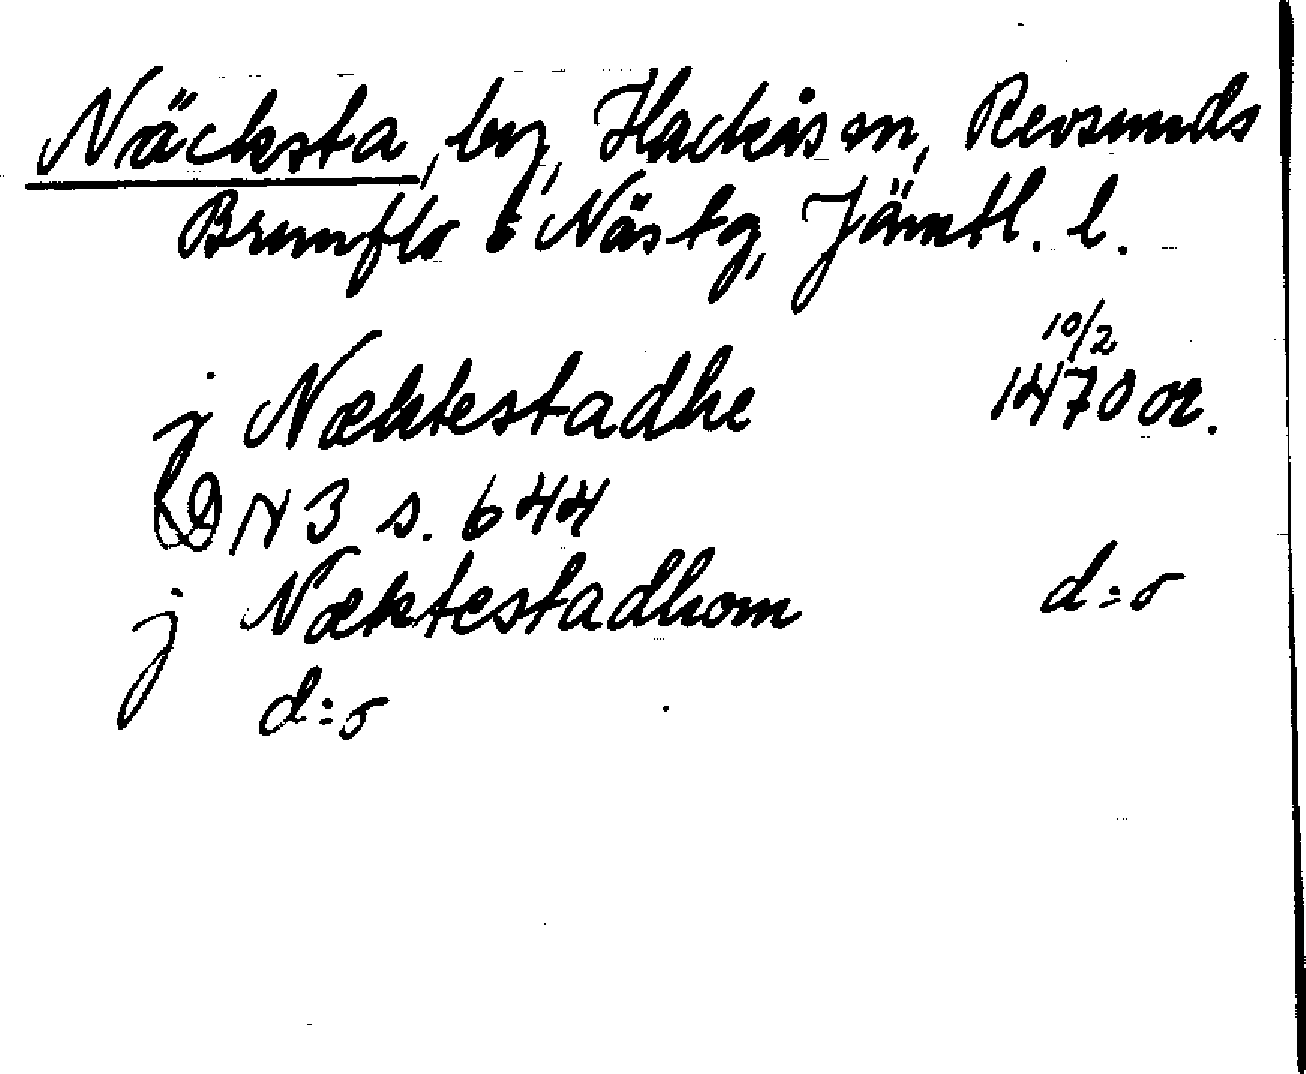 Näcksta, by, Hackås sn, Revsunds
Brunflo o Näs tg, Jämtl. l.
10/2
j Næktestadhe 1470 or.
DN 3 s. 644
j Næktestadhom d:o
d:o